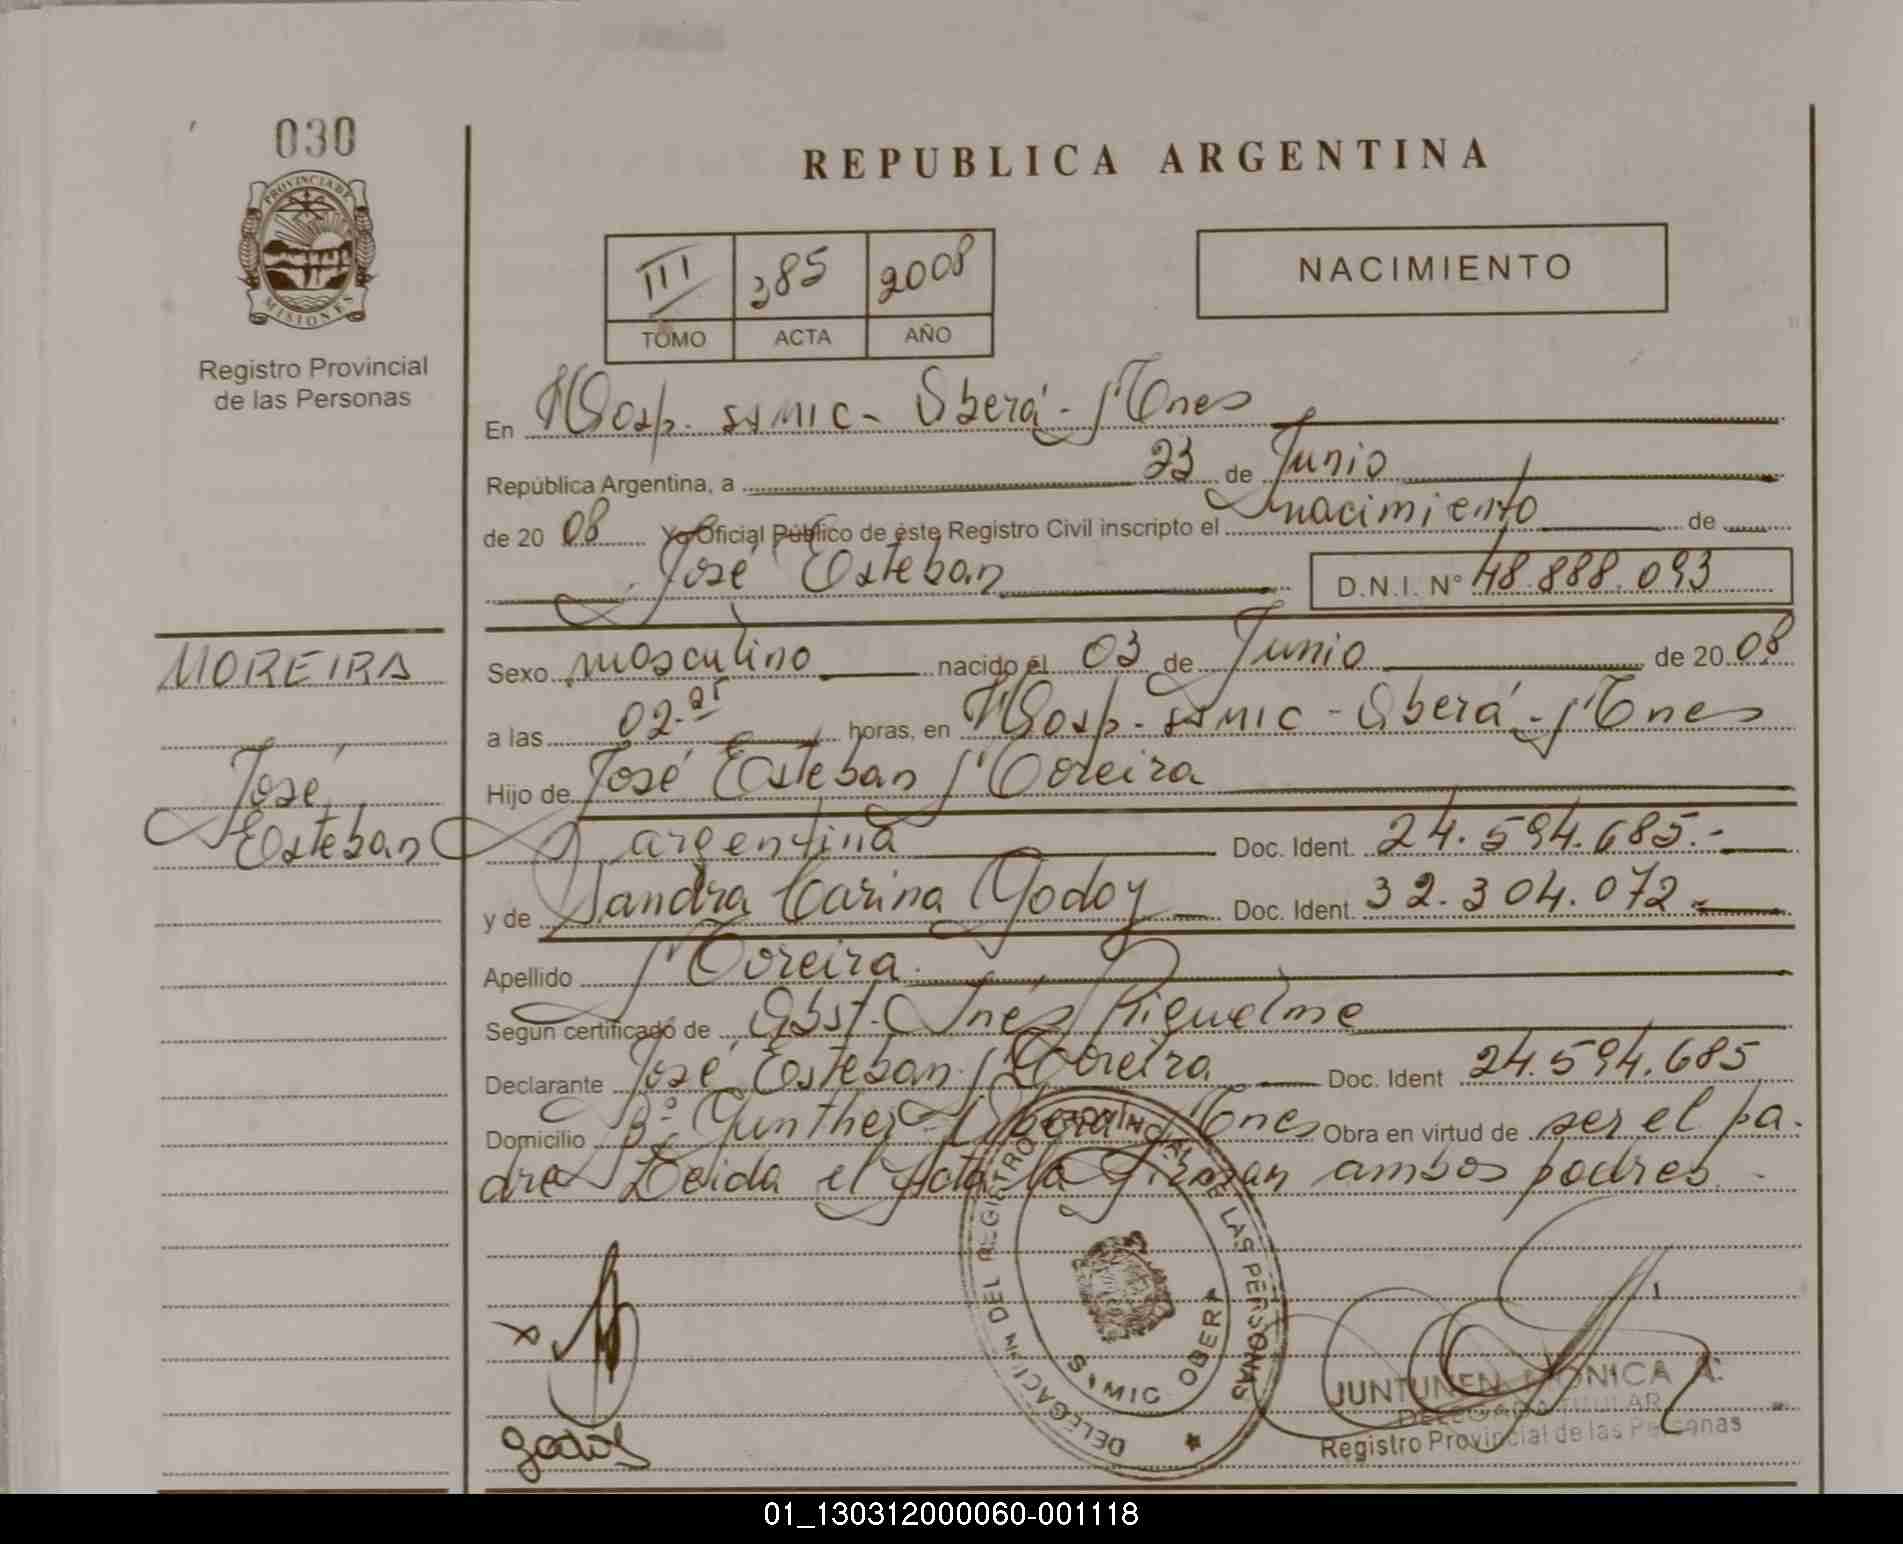 030
REPUBLICA ARGENTINA
PROVINCIA DE
MISIONES
Registro Provincial
de las Personas
III 385 2008
TOMO ACTA AÑO
NACIMIENTO
En Hosp. SAMIC - Oberá - Mnes
República Argentina, a 23 de Junio
de 20 08 Yo Oficial Público de éste Registro Civil inscripto el nacimiento de
José Esteban D.N.I. N° 48.888.093
MOREIRA
José
Esteban
Sexo masculino nacido el 03 de Junio de 20 08
a las 02- horas, en Hosp- SAMIC - Oberá - Mnes
Hijo de José Esteban Moreira
argentina Doc. Ident. 24.594.685.-
y de Sandra Carina Godoy Doc. Ident. 32.304.072.-
Apellido Moreira
Según certificado de Obst. Inés Riquelme
Declarante José Esteban Moreira Doc. Ident 24.594.685
Domicilio B° Gunther - Oberá - Mnes Obra en virtud de ser el pa-
dre Leida el Acta la firman ambos padres.-
x
Godoy
DELEGACION DEL REGISTRO PROVINCIAL DE LAS PERSONAS
SAMIC OBERA
JUNTUNEN MONICA A.
DELEGADA TITULAR
Registro Provincial de las Personas
01_130312000060-001118